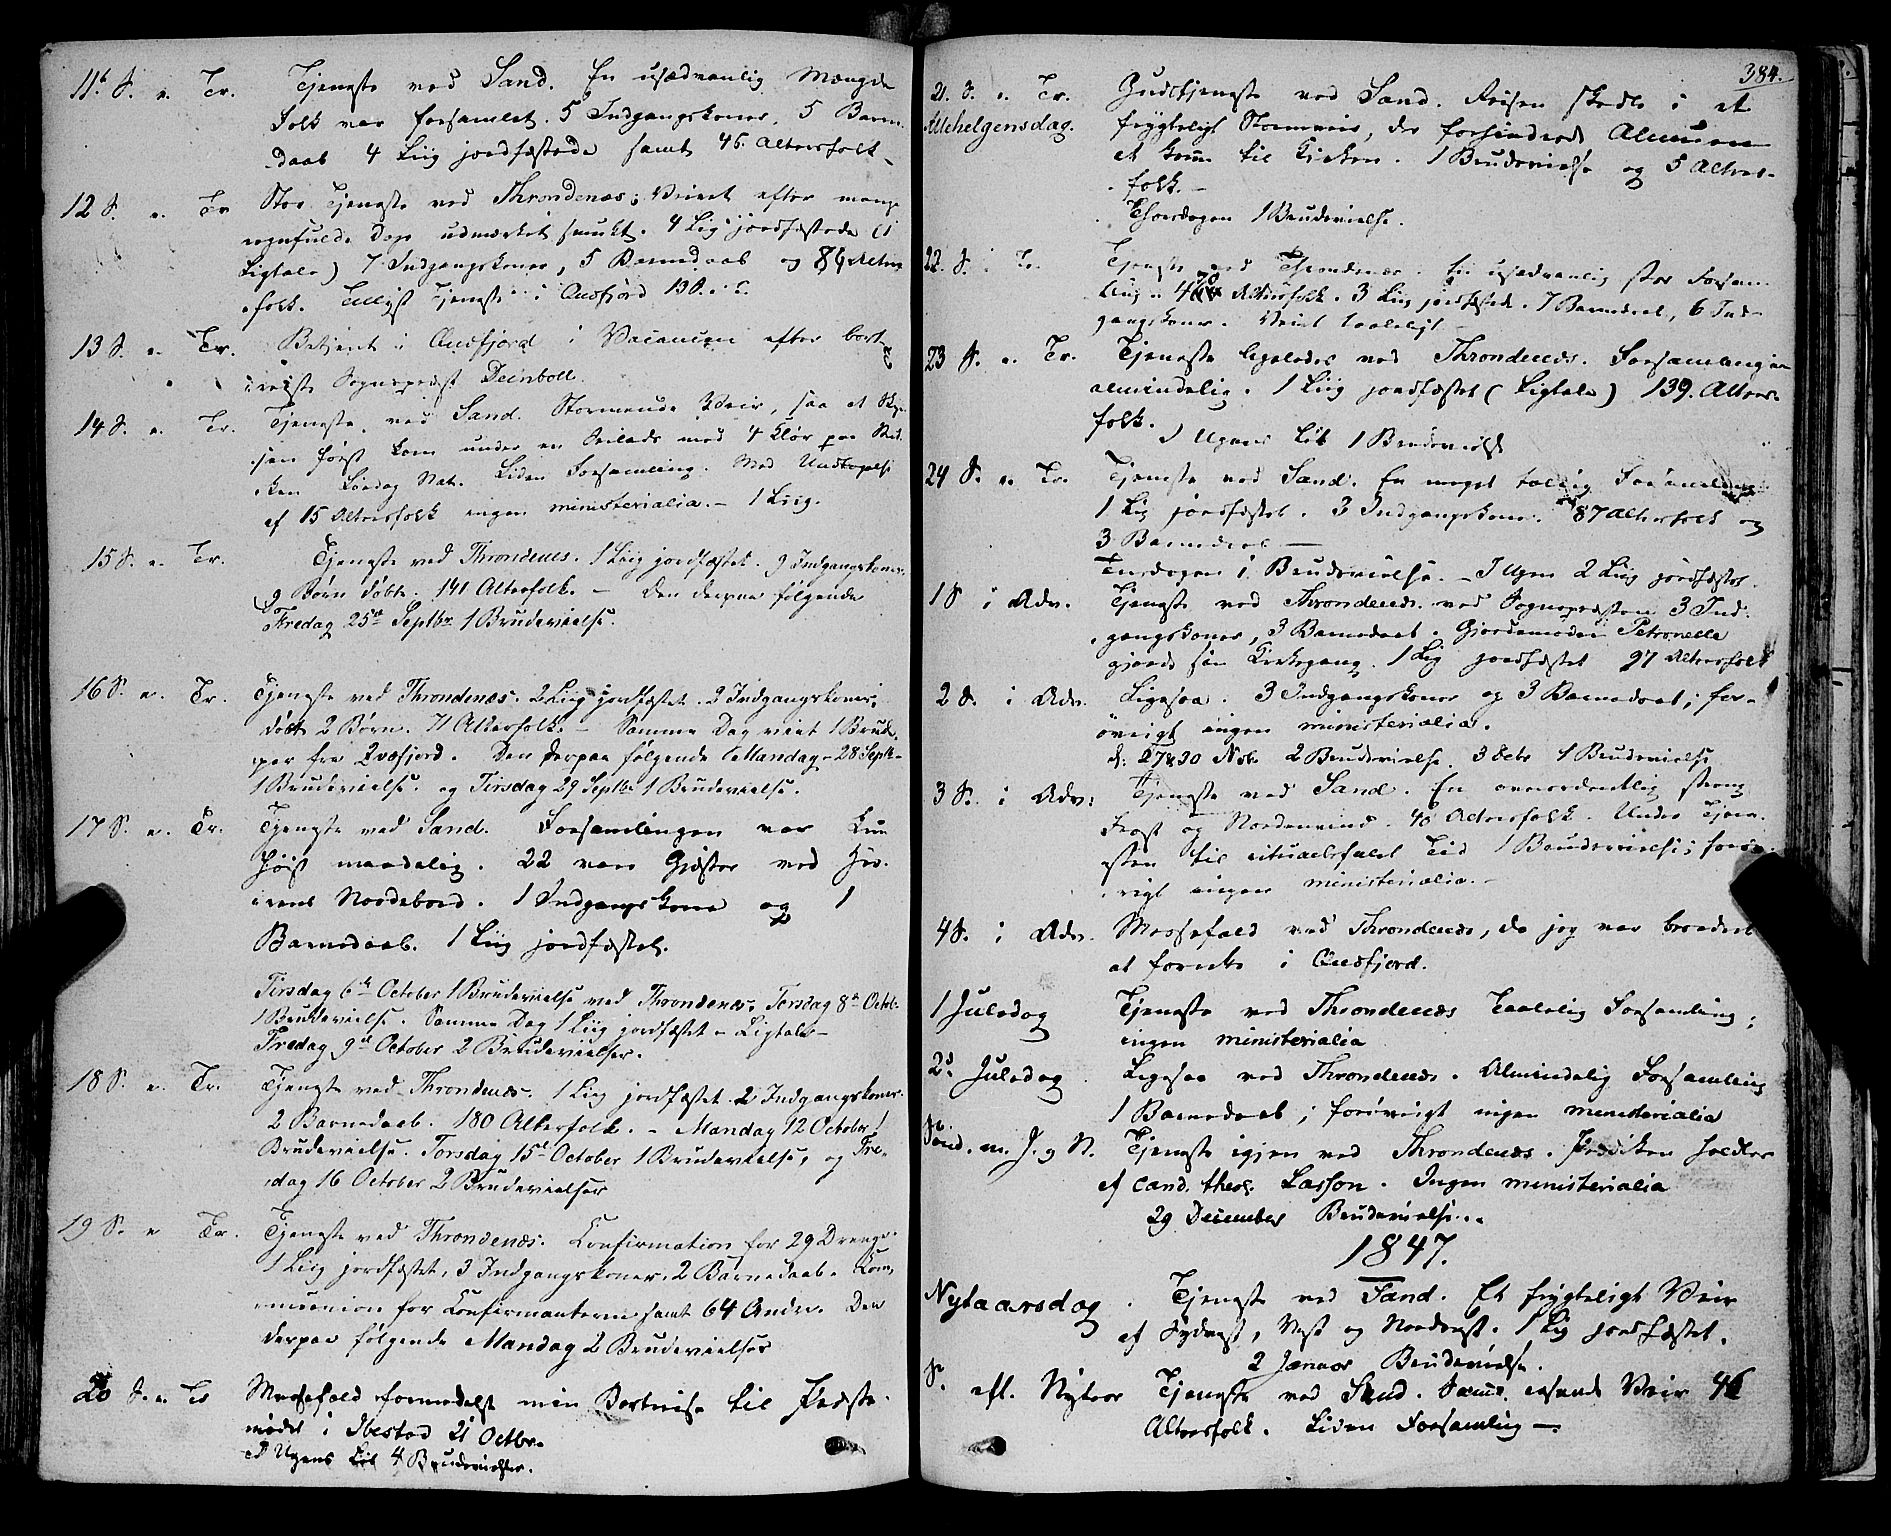 11te S. e. Tr. Tjeneste ved Sand. En usædvanlig Mængde
Folk var forsamlet. 5 Indgangskoner, 5 Barne-
daab 4 Liig jordfæstede samt 46 Altersfolk
12 S. e. Tr Stor Tjeneste ved Throndenæs; Veiret efter mange
regnfulde Dage udmærket smukt. 4 Liig jordfæstede (1
Ligtale) 7 Indgangskoner, 5 Barnedaab og 84 Alters
folk. Tjeneste i Qvæfjord
13 S. e. Tr. Betjent i Qvæfjord i Vacancen efter bort-
reiste Sognepræst Deinboll.
14 S. e. Tr. Tjeneste ved Sand. Stormende Veir, saa at
først kom under en Seilads med 4 Klør paa
Løverdag Nat. Liden Forsamling. Med Undtagelse
af 15 Altersfolk ingen ministerialia. – 1 Liig.
15 S. e. Tr. Tjeneste ved Throndenes. 1 Liig jordfæstet. 9 Indgangskoner.
9 Børn døbte. 141 Alterfolk. – Den derpaa følgende
Fredag 25de Septbr 1 Brudevielse.
16 S. e. Tr. Tjeneste ved Throndenæs. 2 Liig jordfæstet. 2 Indgangskoner;
døbt 2 Børn. 71 Alterfolk. – Samme Dag viet 1 Brude-
par fra Qvæfjord. Den derpaa følgende Mandag – 28 Septb –
1 Brudevielse. og Tirsdag 29 Septbr 1 Brudevielse.
17 S. e. Tr. Tjeneste ved Sand. Forsamlingen var kun
høist maadelig. 22 vare Gjæster ved Her-
rens Nordebord. 1 Indgangskone og 1
Barnedaab. 1 Liig jordfæstet.
Tirsdag 6te October 1 Brudevielse ved Throndenæs. Torsdag 8de Octob.
1 Brudevielse. Samme Dag 1 Liig jordfæstet – Ligtale –
Fredag 9de October 2 Brudevielser.
18 S. e. Tr. Tjeneste ved Throndenæs. 1 Liig jordfæstet. 2 Indgangskoner.
2 Barnedaab. 180 Alterfolk. – Mandag 12 October 1
Brudevielse. Torsdag 15de October 1 Brudevielse, og Fre-
dag 16 October 2 Brudevielser
19 S. e Tr. Tjeneste ved Throndenæs. Confirmation for 29 Drenge.
1 Liig jordfæstet, 3 Indgangskoner. 2 Barnedaab. Com-
munion for Confirmanterne samt 64 Andre. Den
derpaa følgende Mandag 2 Brudevielser
20 S. e. Tr Messefald formedelst min Bortreise til Præste-
mødet i Ibestad 21 Octbr.
I Ugens Løb 4 Brudevielser.
384.
21. S. e. Tr. Gudstjeneste ved Sand. Reisen skedte i et
Allehelgensdag. frygteligt Stormveir, der forhindrede Almuen
at komme til Kirken. 1 Brudevielse og 5 Alters-
folk. –
Thorsdagen 1 Brudevielse.
22. S. e. Tr. Tjeneste ved Throndenæs. En usædvanlig stor Forsam-
ling. Altersfolk. 3 Liig jordfæstede. 7 Barnedaab, 6 Ind-
gangskoner. Veiret taaleligt
23 S. e. Tr. Tjeneste ligeledes ved Throndenæs. Forsamlingen
almindelig. 1 Liig jordfæstet (Ligtale) 139. Alters-
folk.
I Ugens Løb 1 Brudevielse
24 S. e. Tr. Tjeneste ved Sand. En meget talrig Forsamling.
1 Liig jordfæstet. 3 Indgangskoner. 87 Altersfolk og
3 Barnedaab –
Tirsdagen 1 Brudevielse. – I Ugen 2 Liig jordfæstet.
1 S i Adv. Tjeneste ved Throndenæs ved Sognepræsten 3 Ind-
gangskoner, 3 Barnedaab. Gjordemoder Petronelle
gjorde sin Kirkegang. 1 Liig jordfæstet 97 Altersfolk
2 S. i Adv. Ligesaa. 3 Indgangskoner og 3 Barnedaab; for-
øvrigt ingen ministerialia.
d: 27 & 30 Nov. 2 Brudevielse. 3 Debr 1 Brudevielse
3 S. i Adv: Tjeneste ved Sand. En overordentlig streng
Frost og Nordenvind. 40 Altersfolk. Under Tjene-
sten til ritualbefalet Tid 1 Brudevielse; forøv-
rigt ingen ministerialia. –
4 S. i Adv. Messefald ved Throndenæs, da jeg var beordret
at forrette i Qvæfjord.
1 Juledag Tjeneste ved Throndenæs taalelig Forsamling;
ingen ministerialia
2d Juledag Ligesaa ved Throndenæs. Almindelig Forsamling
1 Barnedaab; forøvrigt ingen ministerialia
Sønd. m. J. og N. Tjeneste igjen ved Throndenæs. Prædiken holdtes
af cand. theol. Lasson. Ingen ministerialia
29 December Brudevielse.
1847.
Nytaarsdag. Tjeneste ved Sand. Et frygteligt Veir
af Sydvest, Vest og Nordvest. 1 Liig jordfæstet.
2 Januar Brudevielse.
S. eft. Nytaar Tjeneste ved Sand. Samme rasende Veir 46
Altersfolk. Liden Forsamling –.